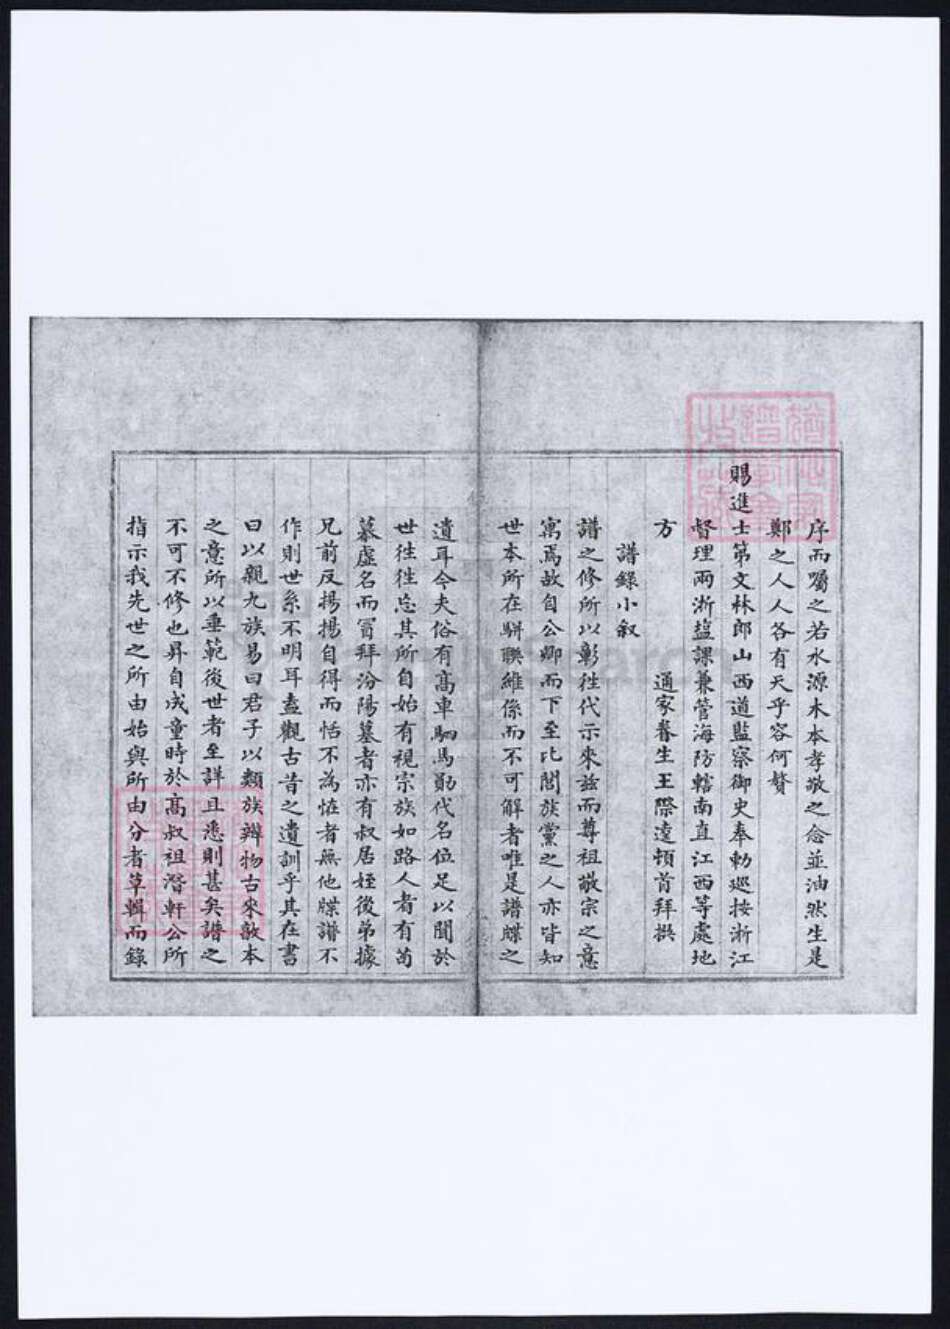 序而囑之若水源木本孝敬之念並油然生是
鄭之人人各有天乎容何贅
賜進士第文林郎山西道監察御史奉勅巡按浙江
督理兩浙塩課兼管海防轄南直江西等處地
方
通家眷生王際逵頓首拜撰
譜錄小叙
譜之修所以彰徃代示來兹而尊祖敬宗之意
寓焉故自公卿而下至比閭族黨之人亦皆知
世本所在駢聯維係而不可觧者唯是譜牒之
遺耳今夫俗有高車駟馬勛代名位足以聞於
世徃徃忘其所自始有視宗族如路人者有茍
慕虛名而冒拜汾陽墓者亦有叔居姪後弟據
兄前反揚揚自得而恬不為恠者無他牒譜不
作則世系不明耳盍觀古昔之遺訓乎其在書
曰以親九族易曰君子以類族辨物古來敦本
之意所以垂範後世者至詳且悉則甚矣譜之
不可不修也昇自成童時於高叔祖潛軒公所
指示我先世之所由始與所由分者草輯而錄